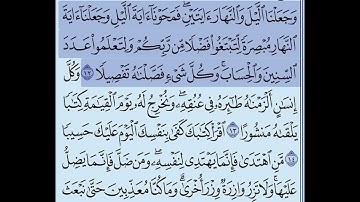 وَجَعَلْنَا ٱلَّيْلَ وَٱلنَّهَارَ ءَايَتَيْنِ ۖ فَمَحَوْنَآ ءَايَةَ ٱلَّيْلِ وَجَعَلْنَآ ءَايَةَ
ٱلنَّهَارِ مُبْصِرَةً لِّتَبْتَغُوا۟ فَضْلًا مِّن رَّبِّكُمْ وَلِتَعْلَمُوا۟ عَدَدَ
ٱلسِّنِينَ وَٱلْحِسَابَ ۚ وَكُلَّ شَىْءٍ فَصَّلْنَٰهُ تَفْصِيلًا ١٢ وَكُلَّ
إِنسَٰنٍ أَلْزَمْنَٰهُ طَٰٓئِرَهُۥ فِى عُنُقِهِۦ ۖ وَنُخْرِجُ لَهُۥ يَوْمَ ٱلْقِيَٰمَةِ كِتَٰبًا
يَلْقَىٰهُ مَنشُورًا ١٣ ٱقْرَأْ كِتَٰبَكَ كَفَىٰ بِنَفْسِكَ ٱلْيَوْمَ عَلَيْكَ حَسِيبًا
١٤ مَّنِ ٱهْتَدَىٰ فَإِنَّمَا يَهْتَدِى لِنَفْسِهِۦ ۖ وَمَن ضَلَّ فَإِنَّمَا يَضِلُّ
عَلَيْهَا ۚ وَلَا تَزِرُ وَازِرَةٌ وِزْرَ أُخْرَىٰ ۗ وَمَا كُنَّا مُعَذِّبِينَ حَتَّىٰ نَبْعَثَ